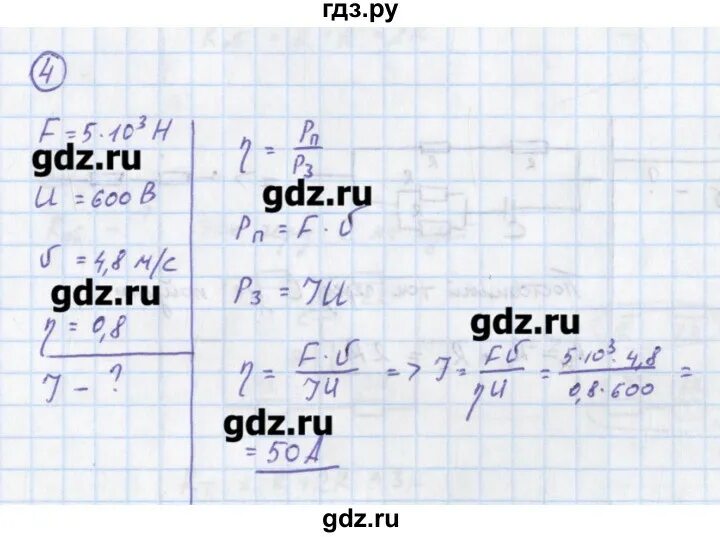 гдз.ру
4
F = 5·10³ Н
gdz.ru
U = 600 В
υ = 4,8 м/с
gdz.ru
η = 0,8
I - ?
η = Pп/Pз
gdz.ru
Pп = F · υ
Pз = IU
gdz.ru
η = F·υ/IU => I = Fυ/ηU = 5·10³·4,8/0,8·600 =
gdz.ru
= 50 А
gdz.ru